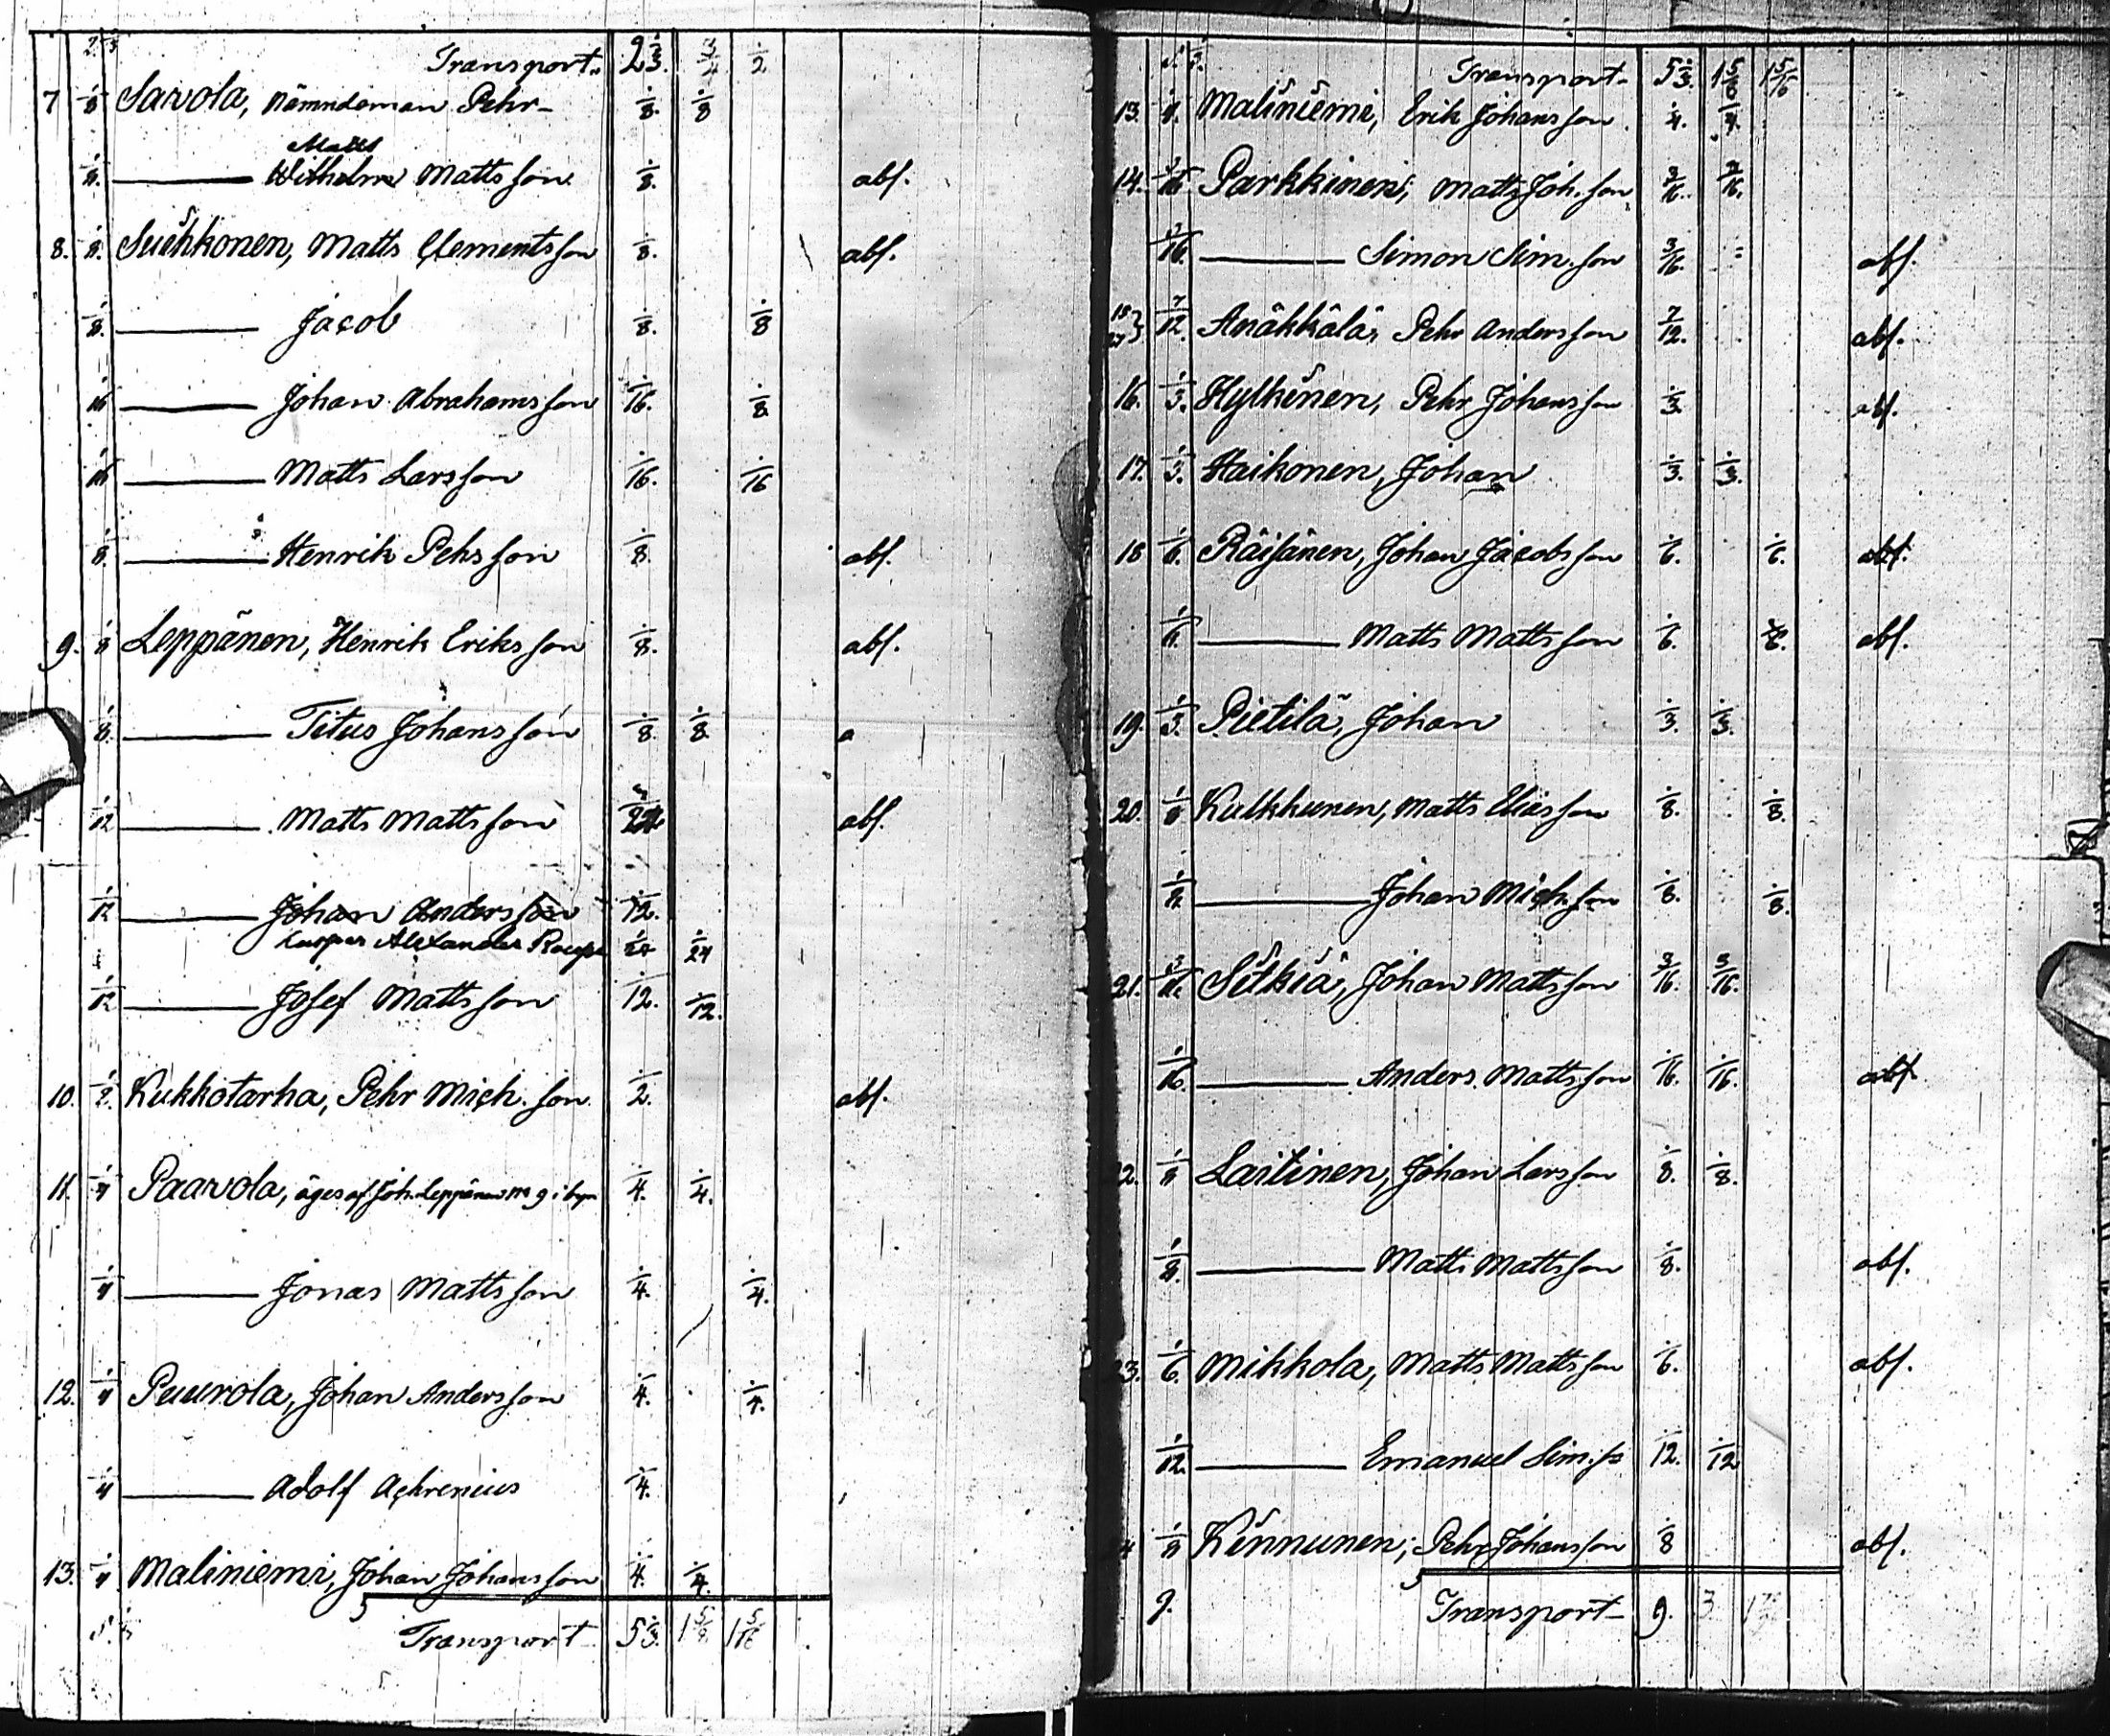 2 1/3 Transport 2 1/3. 3/4 1/2
7 1/8 Savola, Nämndeman Pehr 1/8. 1/8
Matts
1/8. Wilhelm Mattsson 1/8. abs.
8. 1/8. Suihkonen, Matts Clementsson 1/8. abs.
1/8. Jacob 1/8. 1/8
1/16 Johan Abrahamsson 1/16. 1/8
1/16 Matts Larsson 1/16. 1/16
1/8. Henrik Pehrsson 1/8. abs.
9. 1/8 Leppänen, Henrik Eriksson 1/8. abs.
1/8. Titus Johansson 1/8. 1/8. a
1/12 Matts Mattsson abs.
1/12 Johan Andersson 1/12.
Alexander 1/24 1/24
1/12 Josef Mattsson 1/12. 1/12.
10. 1/2. Kukkotarha, Pehr Mich.son 1/2. abs.
11. 1/4 Paavola, äges af Joh. Leppänen No 9 i byn 1/4. 1/4.
1/4. Jonas Mattsson 1/4. 1/4.
12. 1/4 Puurola, Johan Andersson 1/4. 1/4.
1/4 Adolf Achrenius 1/4.
13. 1/4 Maliniemi, Johan Johansson 1/4. 1/4.
5 1/3 Transport 5 1/3. 1 5/16
Transport 5 1/3. 1 5/16
13. 1/4. Maliniemi, Erik Johansson 1/4. 1/4.
14. 3/16 Parkkinen, Matts Joh.son 3/16. 3/16.
3/16. Simon Sim.son 3/16. abs.
15 27 7/12. Anäkkälä, Pehr Andersson 7/12. abs.
16. 1/3. Hylkinen, Pehr Johansson 1/3. abs.
17. 1/3. Haikonen, Johan 1/3. 1/3.
18 1/6. Räisänen, Johan Jacobsson 1/6. 1/6. abs.
1/6. Matts Mattsson 1/6. 1/6. abs.
19. 1/3. Pietilä, Johan 1/3. 1/3.
20. 1/8 Kulkkunen, Matts Eliasson 1/8. 1/8.
1/8. Johan Mich.son 1/8. 1/8.
21. 3/16. Sitkiä, Johan Mattsson 3/16. 3/16.
1/16. Anders Mattsson 1/16. 1/16. abs.
22. 1/8 Laitinen, Johan Larsson 1/8. 1/8.
1/8. Matts Mattsson 1/8. abs.
23. 1/6. Mikkola, Matts Mattsson 1/6. abs.
1/12. Emanuel Sim.s. 1/12. 1/12
24 1/8 Kinnunen, Pehr Johansson 1/8 abs.
9. Transport 9. 3